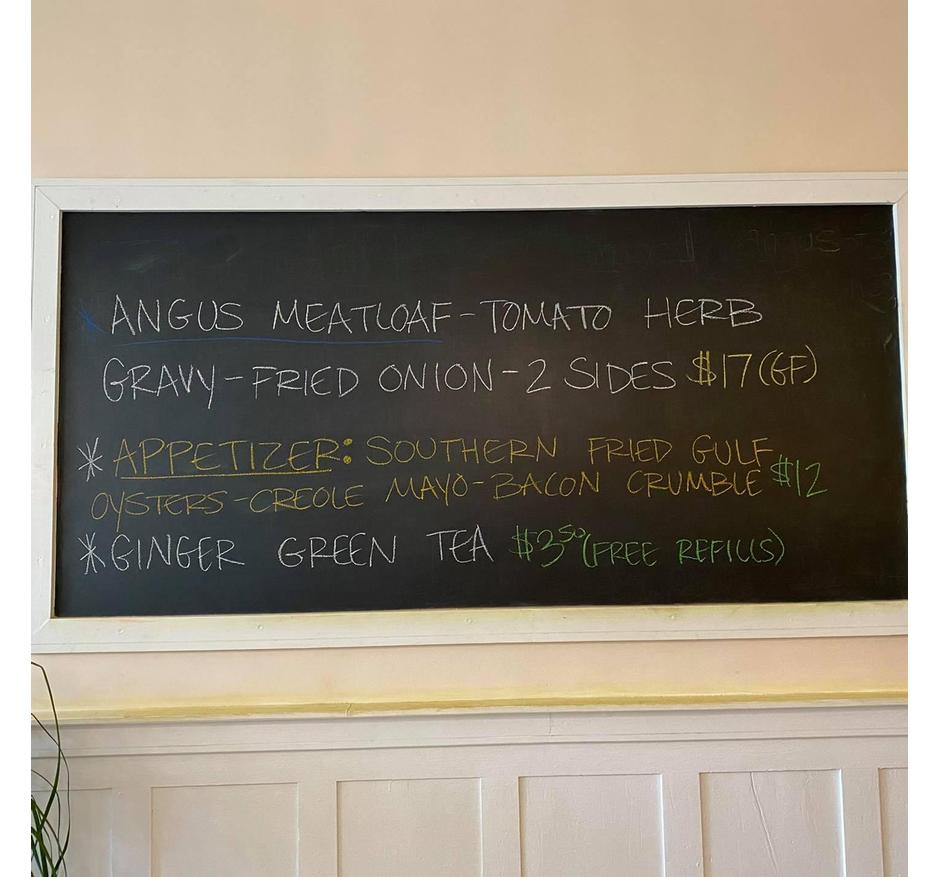 * ANGUS MEATLOAF-TOMATO HERB
GRAVY-FRIED ONION-2 SIDES $17 (GF)
* APPETIZER: SOUTHERN FRIED GULF
OYSTERS-CREOLE MAYO-BACON CRUMBLE $12
* GINGER GREEN TEA $3.50 (FREE REFILLS)